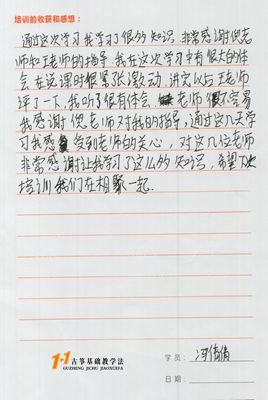 培训的收获和感想:
通过这次学习我学习了很多的知识 非常感谢倪老
师和王老师的指导 我在这次学习中有很大的体
会 在说课时很紧张激动 讲完以后王老师
评了一下,我听了很有体会. 老师 很不容易
我感谢 倪老师 对我的指导,通过这几天学
习我感 受到老师的关心,对这几位老师
非常感谢让我学习了这么多的知识,希望下次
培训 我们在相聚一起.
1+1 古筝基础教学法
GUZHENG JICHU JIAOXUEFA
学员: 冯倩倩
日期: